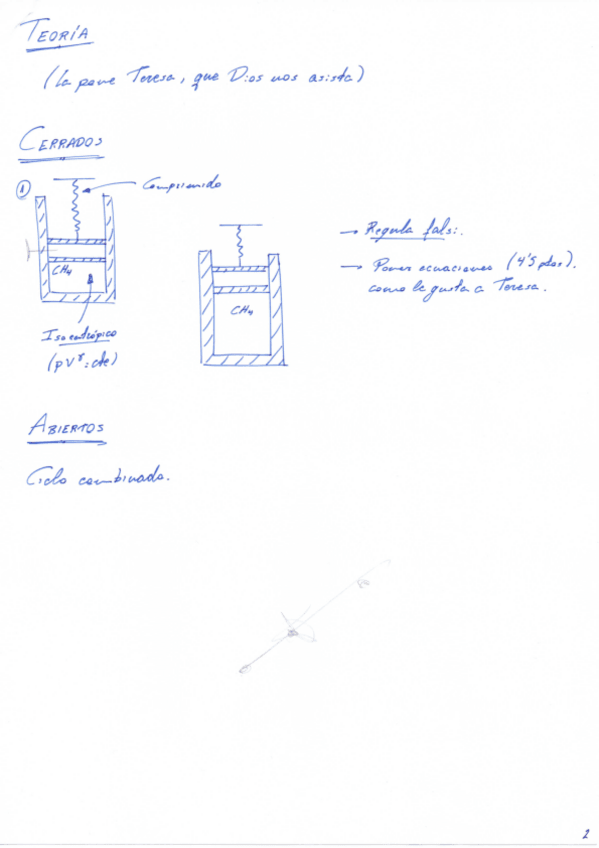 TEORÍA
(La pone Teresa, que Dios nos asista)
CERRADOS
1
Comprimido
CH4
Isoentrópico
(pVᵞ: cte)
CH4
→ Regula falsi.
→ Poner ecuaciones (4'5 ptos).
como le gusta a Teresa.
ABIERTOS
Ciclo combinado.
2